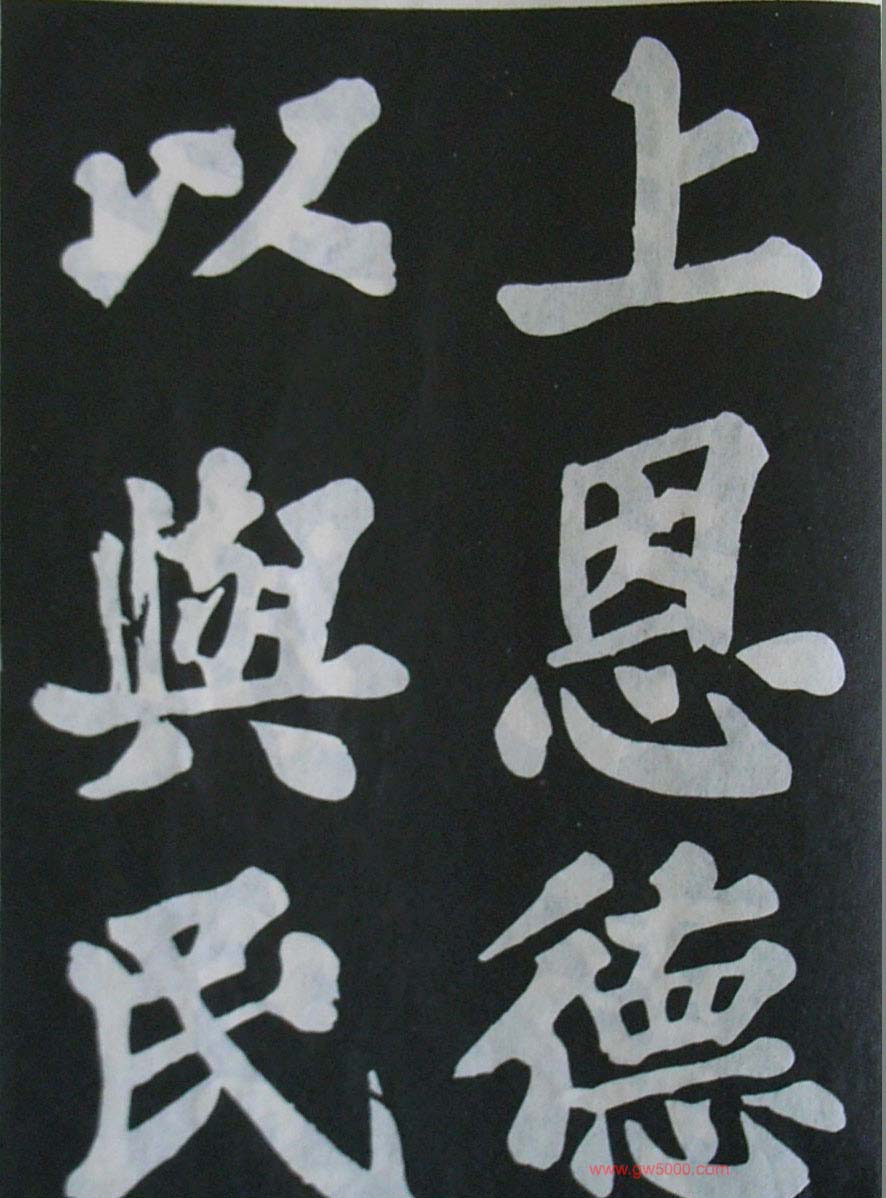 上恩德
以與民
www.gw5000.com